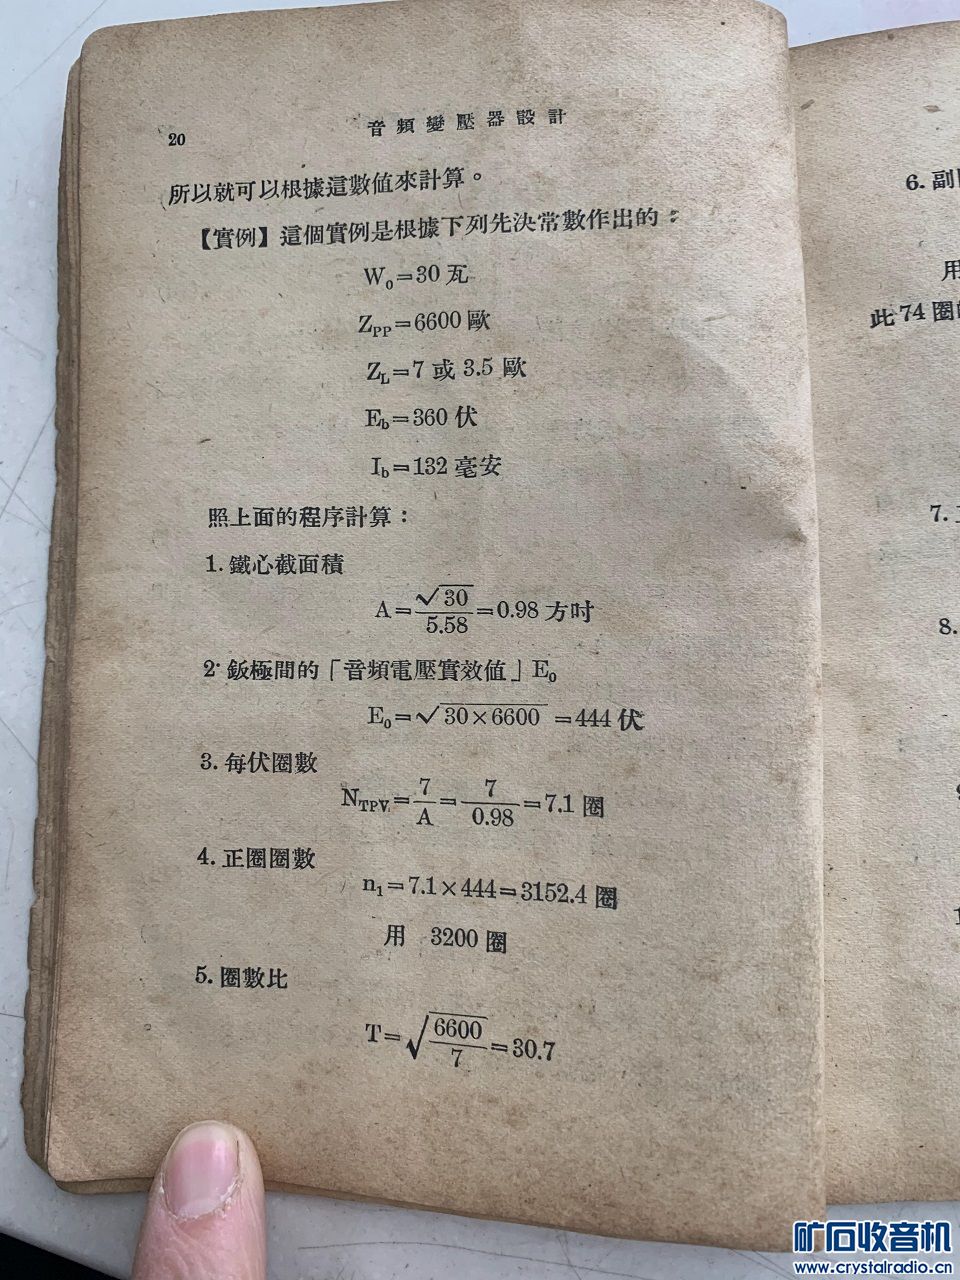 20
音頻變壓器設計
所以就可以根據這數值來計算。
【實例】這個實例是根據下列先決常數作出的：
W₀=30 瓦
Z_PP=6600 歐
Z_L=7 或 3.5 歐
E_b=360 伏
I_b=132 毫安
照上面的程序計算：
1. 鐵心截面積
A=√30/5.58=0.98 方吋
2. 鈑極間的「音頻電壓實效值」E₀
E₀=√30×6600 =444 伏
3. 每伏圈數
N_TPV=7/A=7/0.98=7.1 圈
4. 正圈圈數
n₁=7.1×444=3152.4 圈
用 3200 圈
5. 圈數比
T=√6600/7=30.7
6. 副
用
此 74 圈
7.
8.
矿石收音机
www.crystalradio.cn